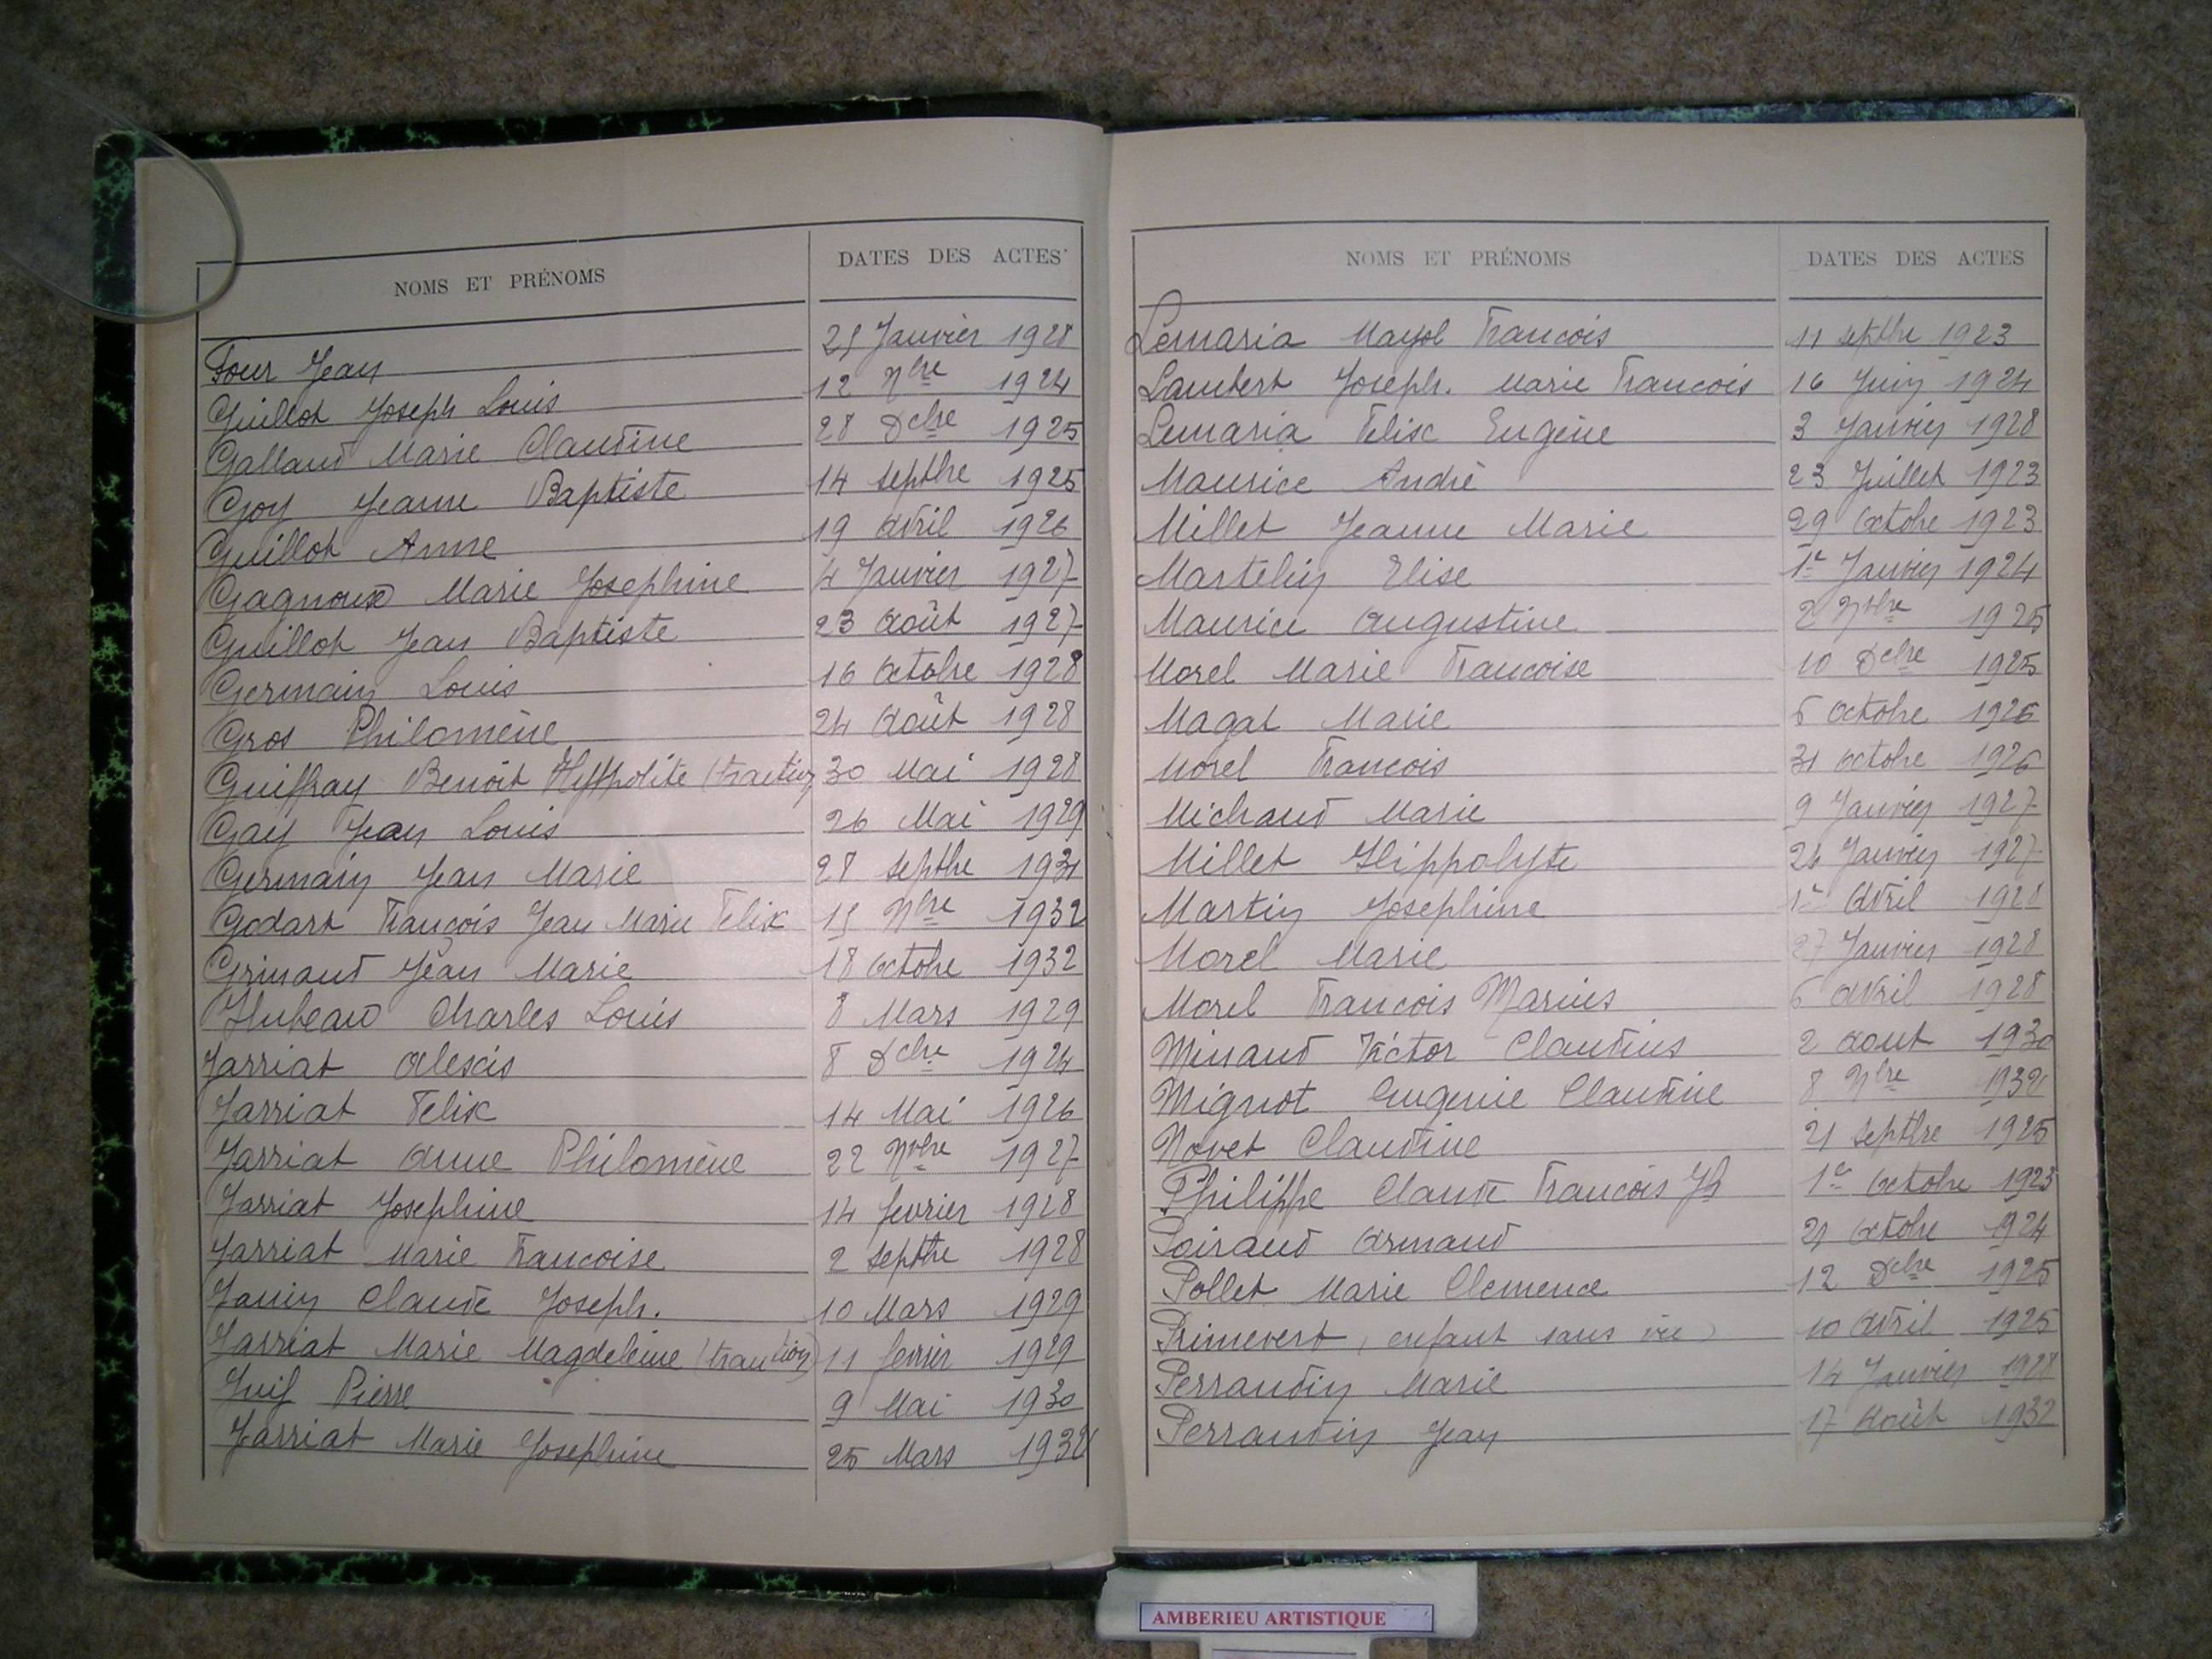 NOMS ET PRÉNOMS DATES DES ACTES
Four Jean 25 Janvier 1928
Guillot Joseph Louis 12 Nbre 1924
Galland Marie Claudine 28 Dcbre 1925
Goy Jeanne Baptiste 14 septbre 1925
Guillot Anne 19 avril 1926
Gagnoux Marie Josephine 4 Janvier 1927
Guillot Jean Baptiste 23 Août 1927
Germain Louis 16 octobre 1928
Gros Philomène 24 Août 1928
Guiffray Benoit Hyppolite (traction 30 Mai 1928
Gay Jean Louis 26 Mai 1929
Germain Jean Marie 28 septbre 1931
Godart François Jean Marie Felix 15 Nbre 1932
Grinand Jean Marie 18 octobre 1932
Hubeau Charles Louis 8 Mars 1929
Jarriat Alexis 8 Dcbre 1924
Jarriat Felix 14 Mai 1926
Jarriat Anne Philomène 22 Nbre 1927
Jarriat Josephine 14 fevrier 1928
Jarriat Marie Francoise 2 septbre 1928
Janin Claude Joseph. 10 Mars 1929
Jarriat Marie Magdeleine (traction) 11 fevrier 1929
Juif Pierre 9 Mai 1930
Jarriat Marie Josephine 25 Mars 1932
NOMS ET PRÉNOMS DATES DES ACTES
Lémaria Mayol Francois 11 septbre 1923
Lambert Joseph. Marie Francois 16 Juin 1924
Lemaria Felix Eugène 3 Janvier 1928
Maurice André 23 Juillet 1923
Millet Jeanne Marie 29 octobre 1923
Martelin Elise 1er Janvier 1924
Maurice Augustine 2 Nbre 1925
Morel Marie Francoise 10 Dcbre 1925
Magat Marie 6 octobre 1926
Morel Francois 31 octobre 1926
Michaud Marie 9 Janvier 1927
Millet Hippolyte 26 Janvier 1927
Martin Josephine 1er Avril 1928
Morel Marie 27 Janvier 1928
Morel Francois Marius 6 avril 1928
Minaud Victor Claudius 2 Aout 1930
Mignot Eugenie Claudine 8 Nbre 1932
Novet Claudine 21 septbre 1925
Philippe Claude Francois Jh 1er octobre 1923
Poiraud Armand 21 octobre 1924
Pollet Marie Clemence 12 Dcbre 1925
Primevert (enfant sans vie) 10 avril 1925
Perraudin Marie 14 Janvier 1928
Perraudin Jean 17 Août 1932
AMBERIEU ARTISTIQUE